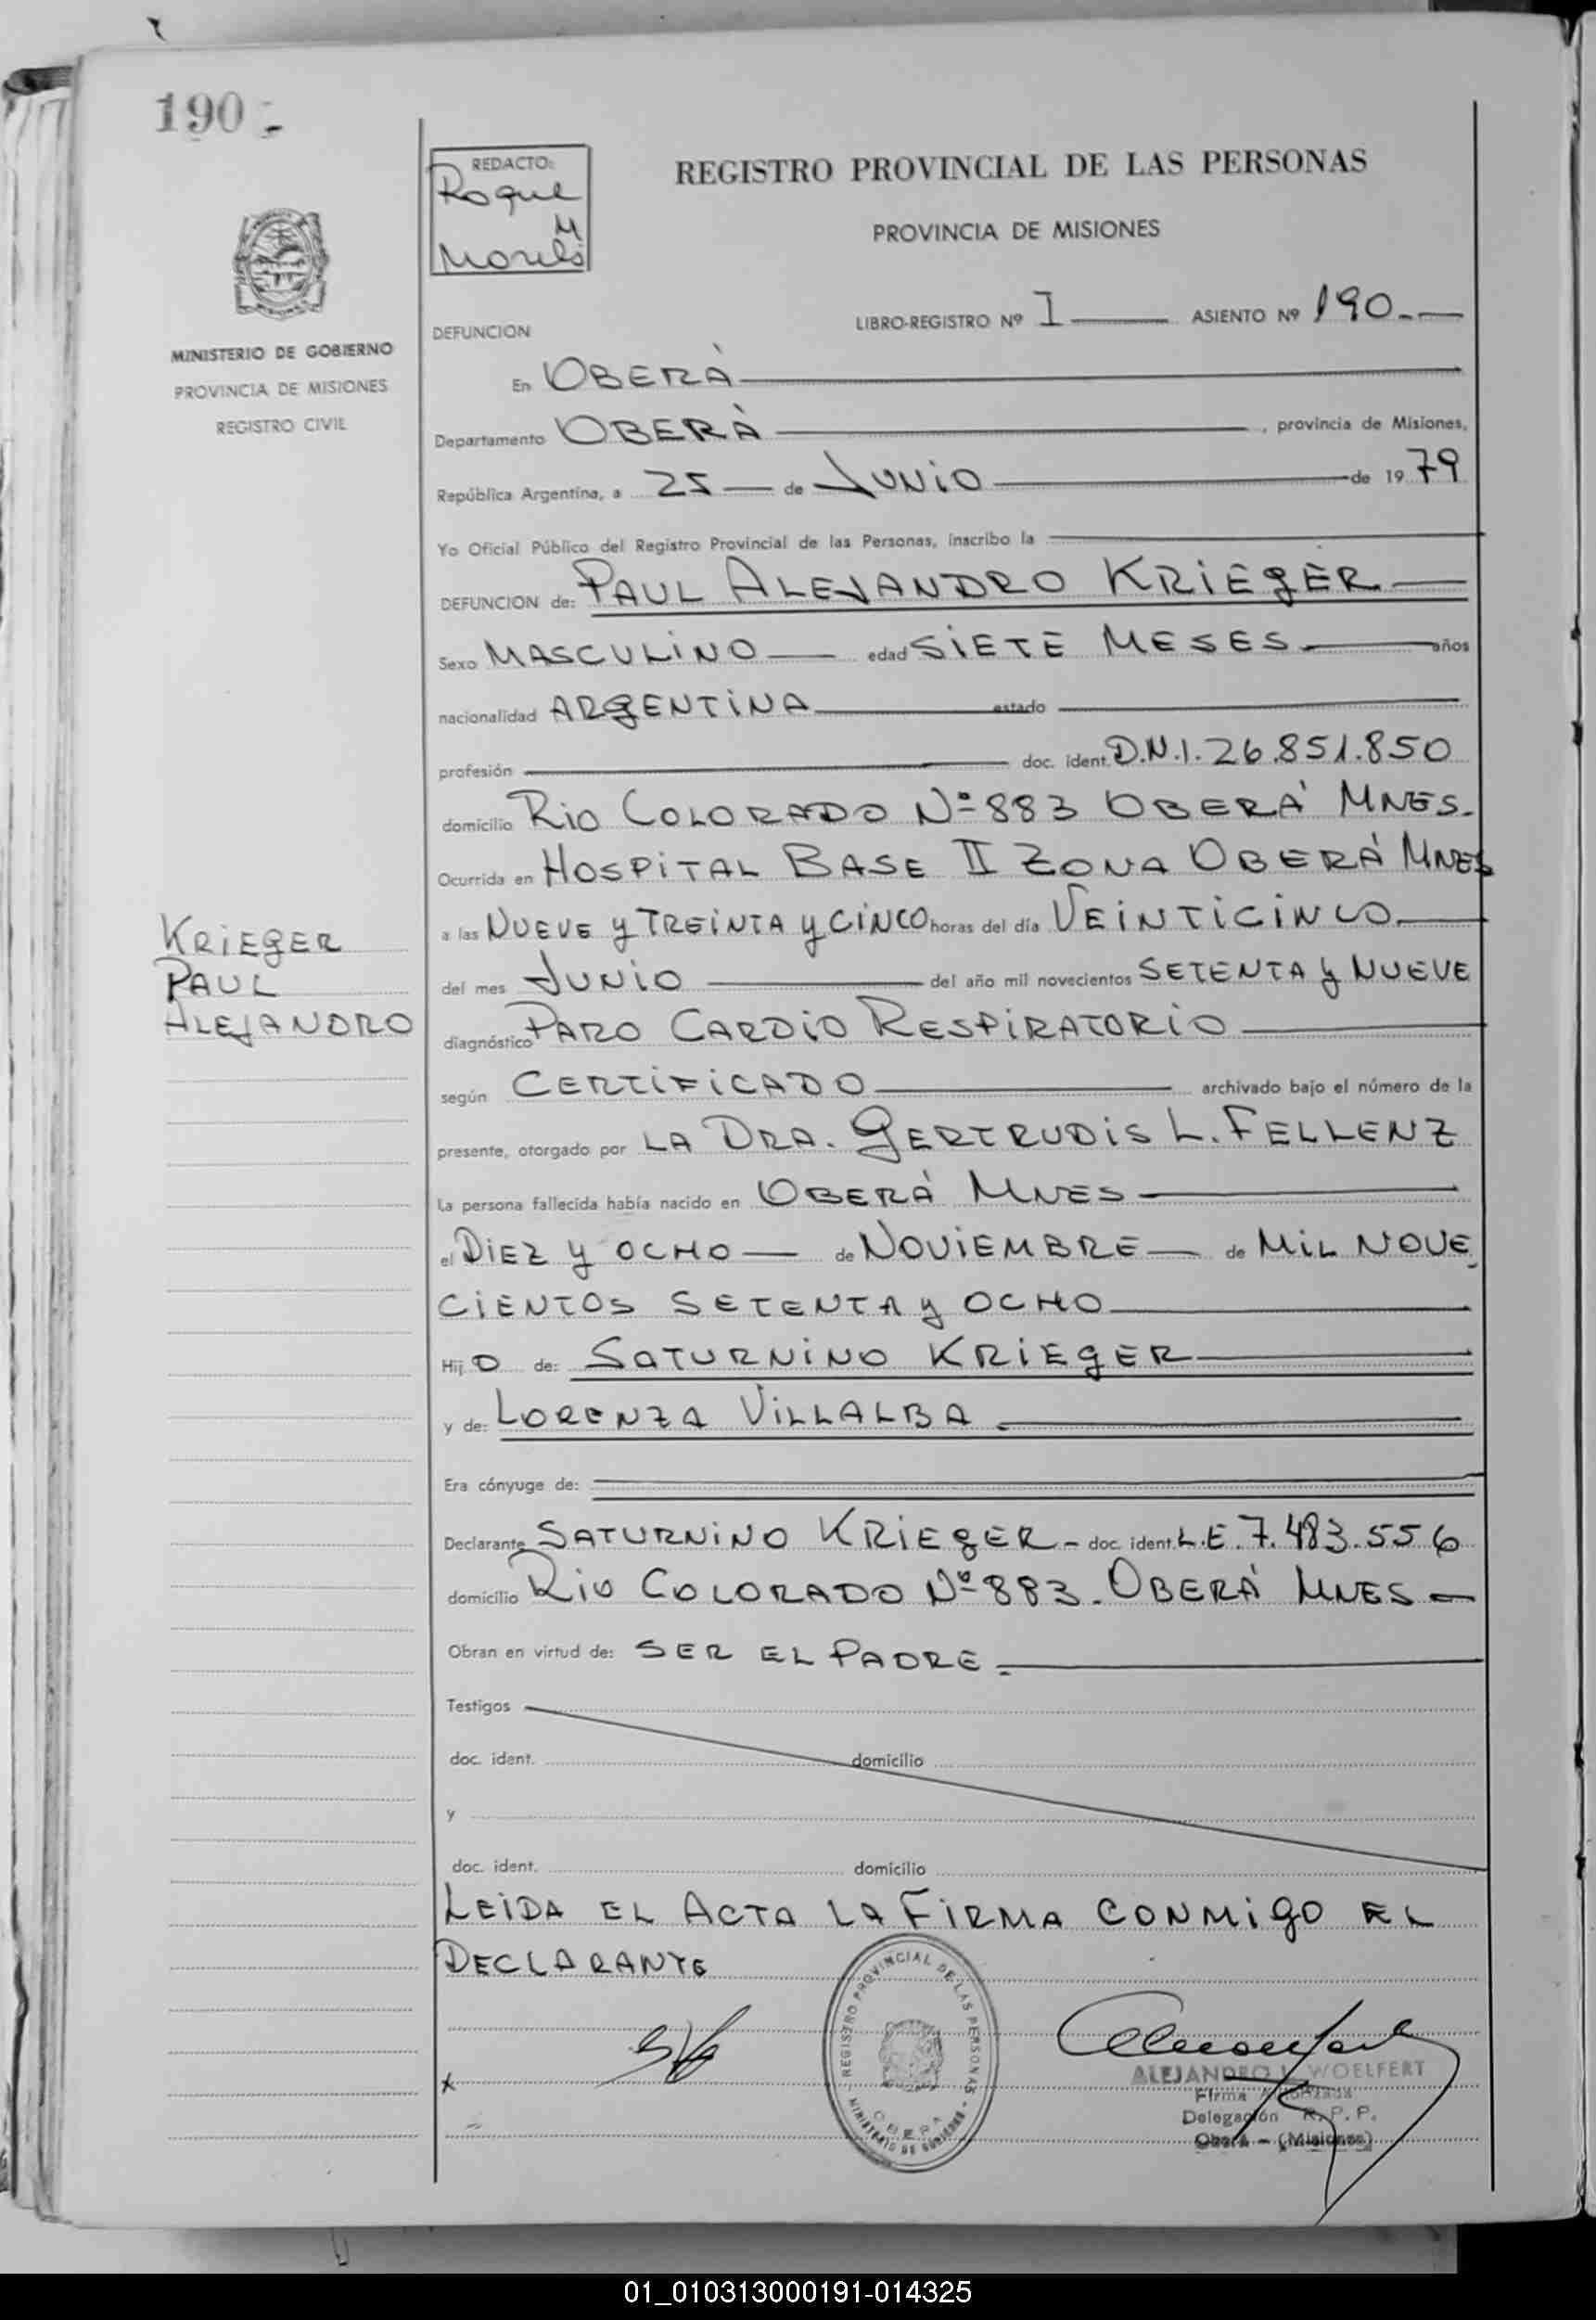 190
REDACTO:
Roque
M
REGISTRO PROVINCIAL DE LAS PERSONAS
PROVINCIA DE MISIONES
MINISTERIO DE GOBIERNO
PROVINCIA DE MISIONES
REGISTRO CIVIL
LIBRO-REGISTRO Nº I ASIENTO Nº 190.-
DEFUNCION
En OBERÀ
Departamento OBERÀ, provincia de Misiones,
República Argentina, a 25 de JUNiO de 1979
Yo Oficial Público del Registro Provincial de las Personas, inscribo la
DEFUNCION de: PAUL ALEJANDRO KRiEgER
Sexo MASCULiNO edad SiETE MESES años
nacionalidad ARgENTiNA estado
profesión doc. ident. D.N.I. 26.851.850
domicilio RiO COLORADO Nº 883 OBERÁ MNES.
Ocurrida en HOSPiTAL BASE II ZONA OBERÁ MNES
a las NUEVE y TREiNTA y CiNCO horas del día VEiNTiCiNCO
del mes JUNiO del año mil novecientos SETENTA y NUEVE
KRiEgER
PAUL
ALEJANDRO
diagnóstico PARO CARDiO RESPiRATORiO
según CERTiFiCADO archivado bajo el número de la
presente, otorgado por LA DRA. GERTRUDiS L. FELLENZ
La persona fallecida había nacido en OBERÁ MNES
el DiEZ y OCHO de NOViEMBRE de MiL NOVE
CiENTOS SETENTA y OCHO
Hij O de: SATURNiNO KRiEgER
y de: LORENZA ViLLALBA
Era cónyuge de:
Declarante SATURNiNO KRiEgER - doc. ident. L.E. 7.483.556
domicilio RiO COLORADO Nº 883. OBERÁ MNES
Obran en virtud de: SER EL PADRE.
Testigos
doc. ident. domicilio
y
doc. ident. domicilio
LEiDA EL ACTA LA FiRMA CONMigO EL
DECLARANTE
REGISTRO PROVINCIAL DE LAS PERSONAS
MINISTERIO DE GOBIERNO
OBERA
x
ALEJANDRO L. WOELFERT
Firma Autorizada
Delegación R.P.P.
Oberá - (Misiones)
01_010313000191-014325